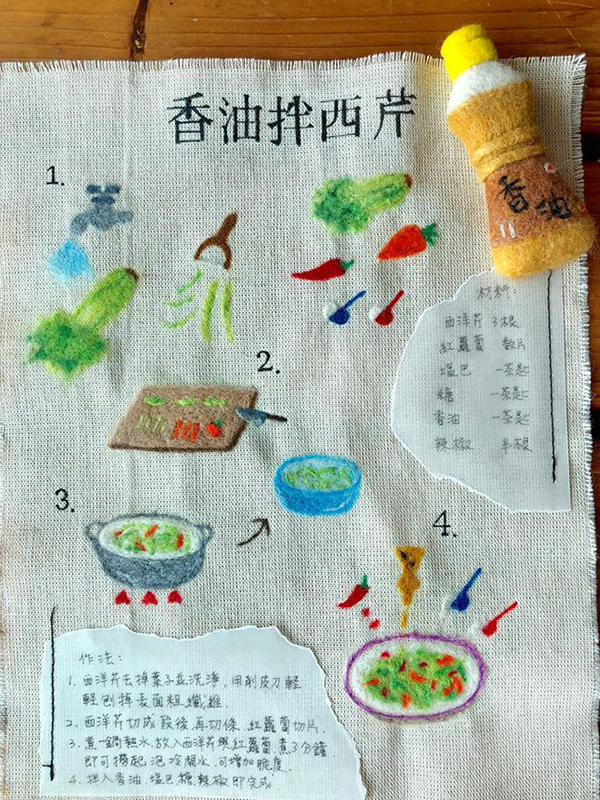 香油拌西芹
1.
香油
材料:
西洋芹 3根
紅蘿蔔 數片
塩巴 一茶匙
糖 一茶匙
香油 一茶匙
辣椒 半根
2.
3.
4.
作法:
1. 西洋芹去掉葉子並洗淨,用削皮刀輕
輕刨掉表面粗纖維.
2. 西洋芹切成段後,再切條,紅蘿蔔切片.
3. 煮一鍋熱水,放入西洋芹與紅蘿蔔,煮3分鐘
即可撈起,泡冷開水,可增加脆度.
4. 拌入香油、塩巴、糖、辣椒即完成